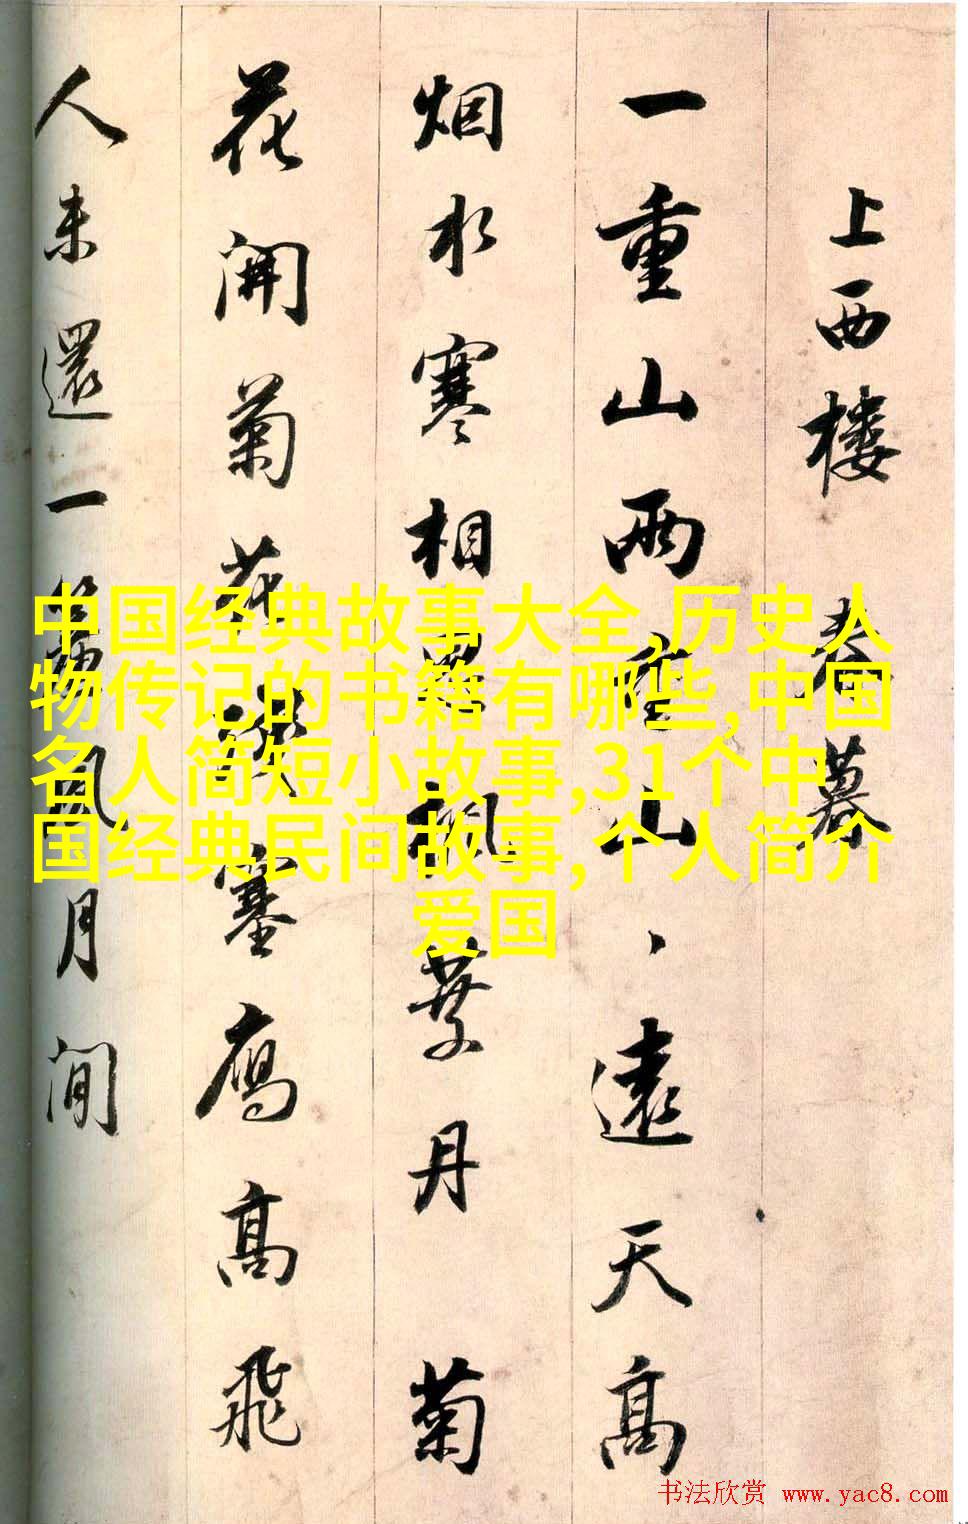 上西楼 春暮
一重山两重山、遠天高
烟水寒相思楓葉丹菊
花開菊花残塞鴈高飛
人未還一簾風月閒
中国经典故事大全,历史人
物传记的书籍有哪些,中国
名人简短小故事,31个中
国经典民间故事,个人简介
爱国
书法欣赏 www.yac8.com